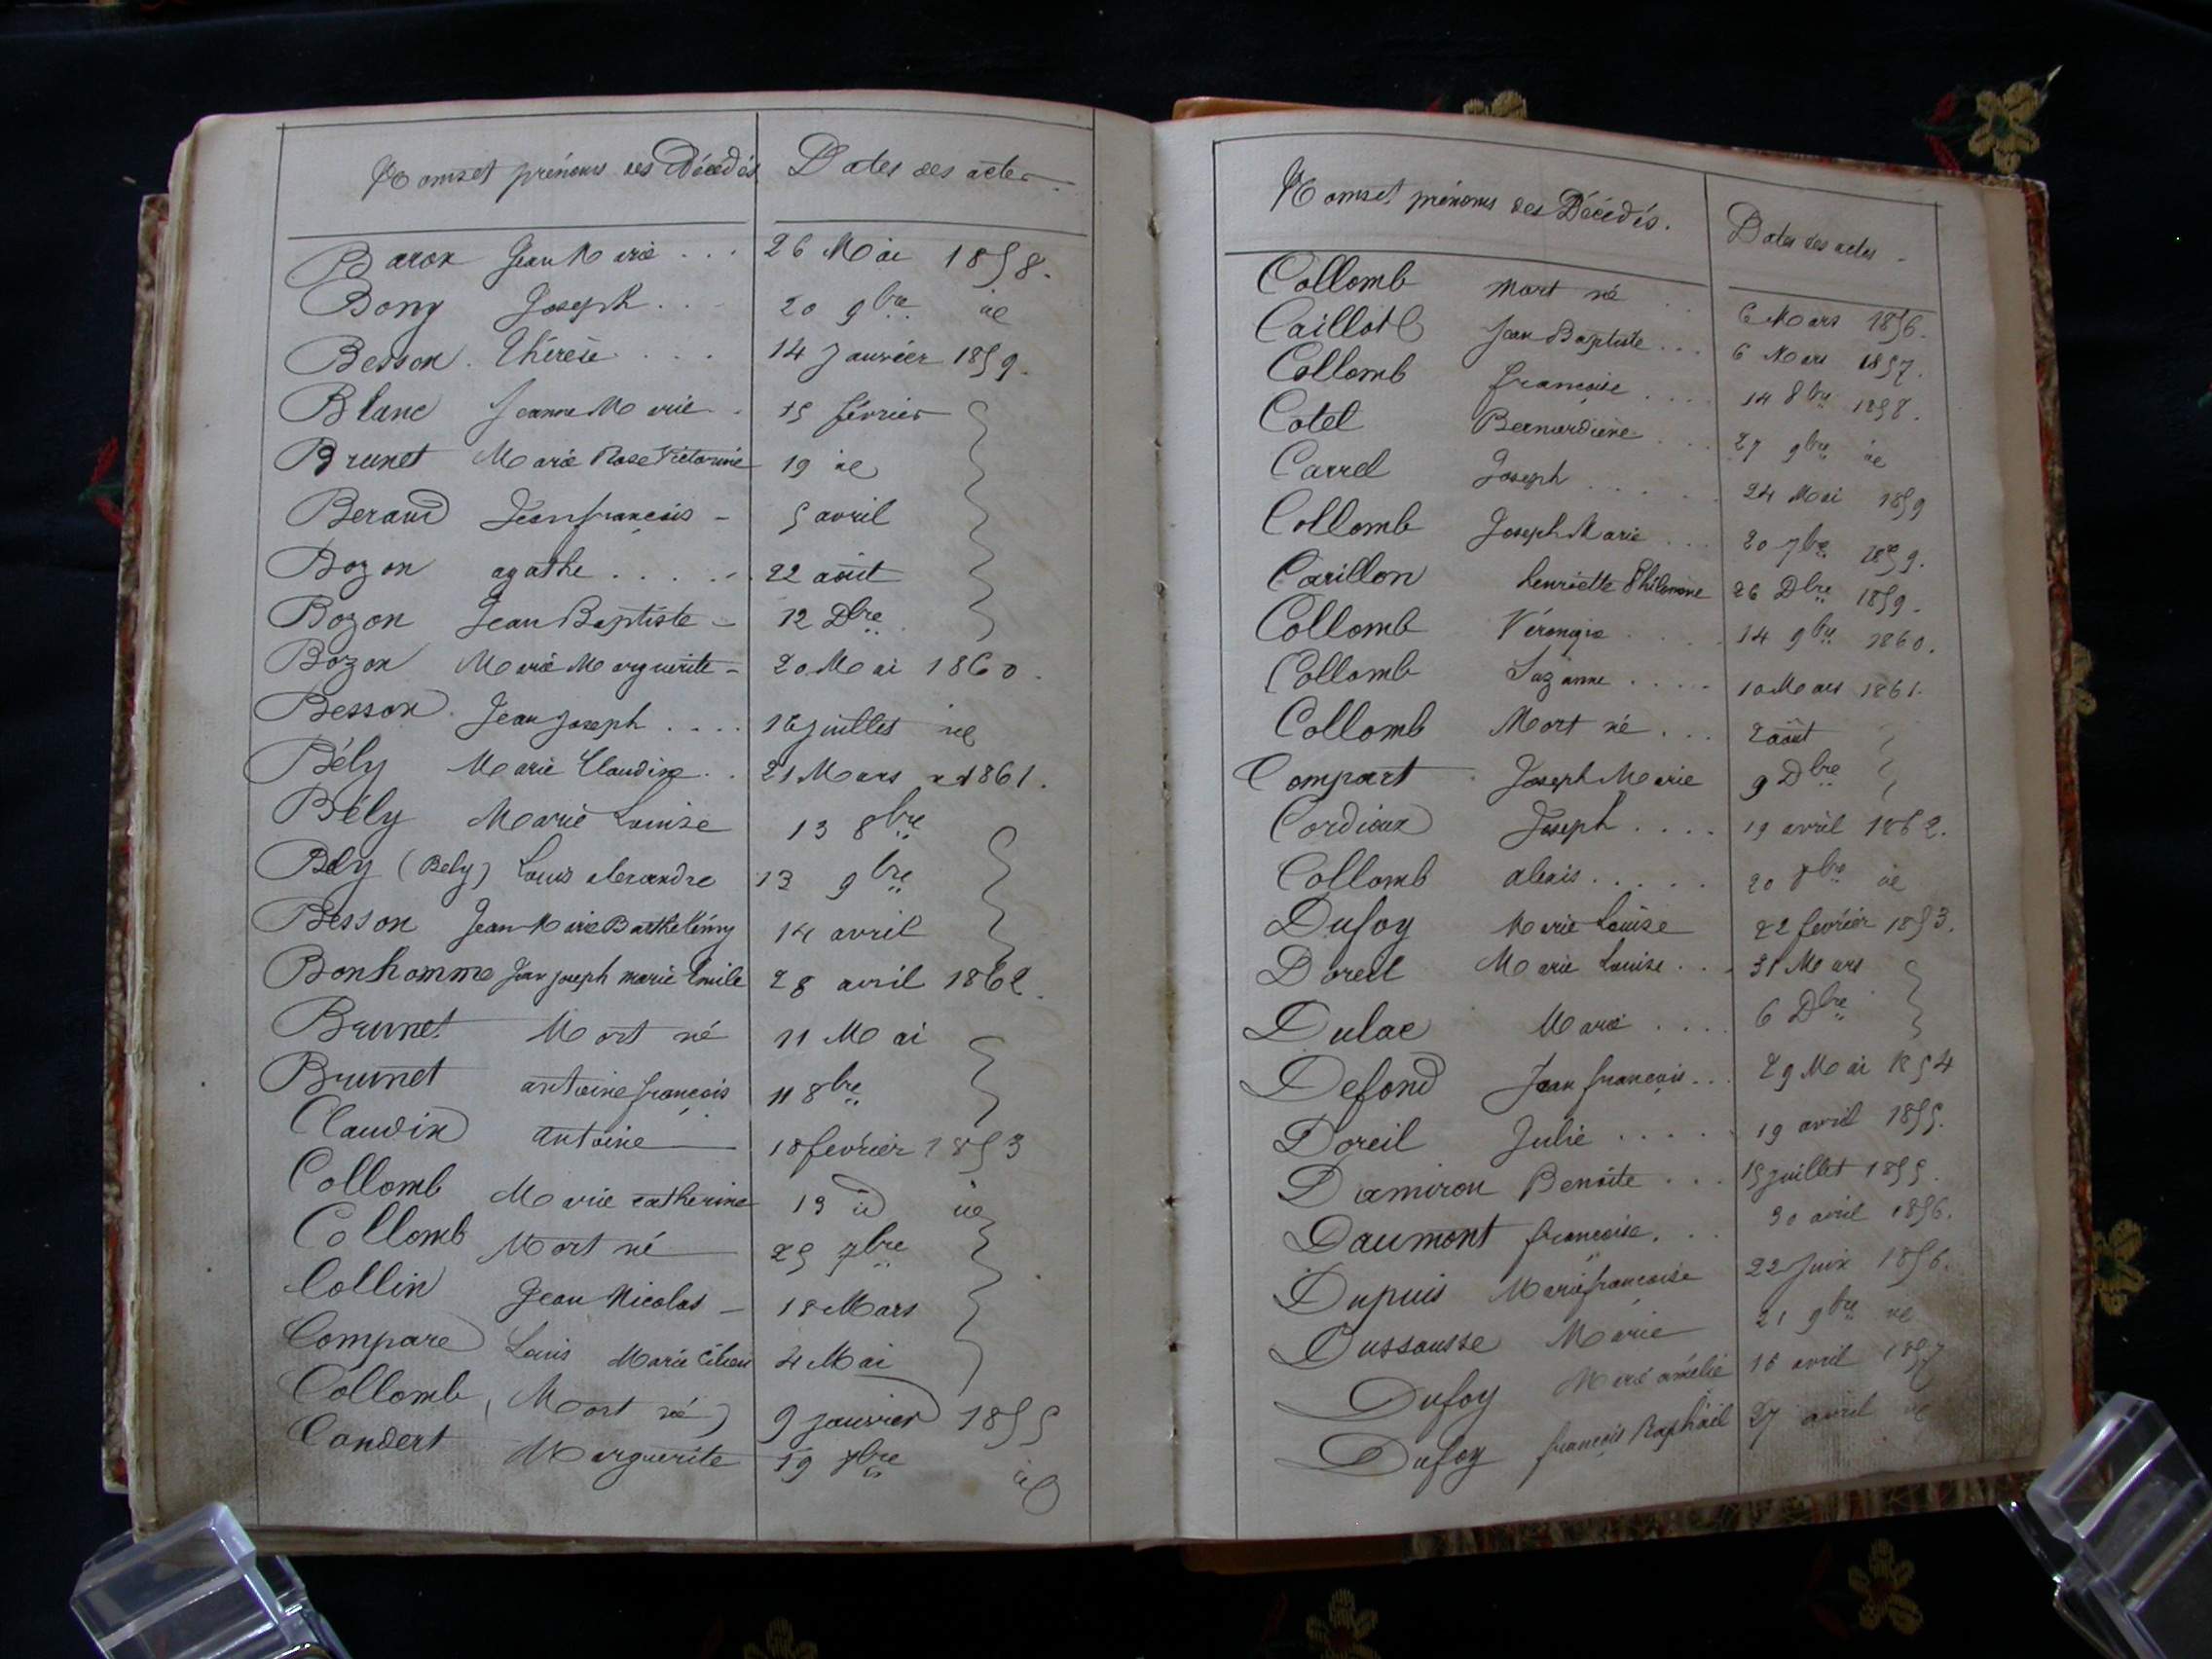 Noms et prénoms des Décédés Dates des actes.
Baron Jean Marie ... 26 Mai 1858.
Bony Joseph .. 20 9bre id
Besson Thérèse ... 14 Janvier 1859.
Blanc Jeanne Marie . 15 février
Brunet Marie Rose Victorine 19 id
Beraud Jean françois - 5 avril
Bozon agathe ..... 22 août
Bozon Jean Baptiste - 12 Dbre
Bozon Marie Marguerite - 20 Mai 1860.
Besson Jean Joseph .... 16 juillet id
Bély Marie Claudine .. 21 Mars 1861.
Bély Marie Louise 13 8bre
Bély (Bely) Louis alexandre 13 9bre
Besson Jean Marie Barthelémy 14 avril
Bonhomme Jean joseph marie Emile 28 avril 1862.
Brunet Mort né 11 Mai
Brunet antoine françois 11 8bre
Claudin antoine 18 février 1853
Collomb Marie catherine 19 id id
Collomb Mort né 25 7bre
Collin Jean Nicolas - 18 Mars
Compare Louis Marie 4 Mai
Collomb, (Mort né) 9 janvier 1855
Condert Marguerite 19 7bre id
Noms et prénoms des Décédés. Dates des actes.
Collomb mort né 6 Mars 1856.
Caillot Jean Baptiste ... 6 Mars 1857.
Collomb françoise .... 14 8bre 1858.
Cotel Bernardine ... 27 9bre id
Carrel Joseph ..... 24 Mai 1859
Collomb Joseph Marie ... 20 7bre 1859.
Carillon henriette Philomène 26 Dbre 1859.
Collomb Véronique .... 14 9bre 1860.
Collomb Suzanne ..... 10 Mars 1861.
Collomb Mort né ... 2 août
Compart Joseph Marie 9 Dbre
Cordieux Joseph .... 19 avril 1862.
Collomb alexis ..... 20 7bre id
Dufoy Marie Louise 22 février 1853.
Doreil Marie Louise ... 31 Mars
Dulac Marie .... 6 Dbre
Defond Jean françois ... 29 Mai 1854
Doreil Julie ..... 19 avril 1855.
Damiron Benoite ... 15 juillet 1855.
Daumont françoise. .. 30 avril 1856.
Dupuis Marie françoise 22 Juin 1856.
Dussausse Marie 21 9bre id
Dufoy Marie amélie 18 avril 1857
Dufoy françois Raphaël 27 avril id